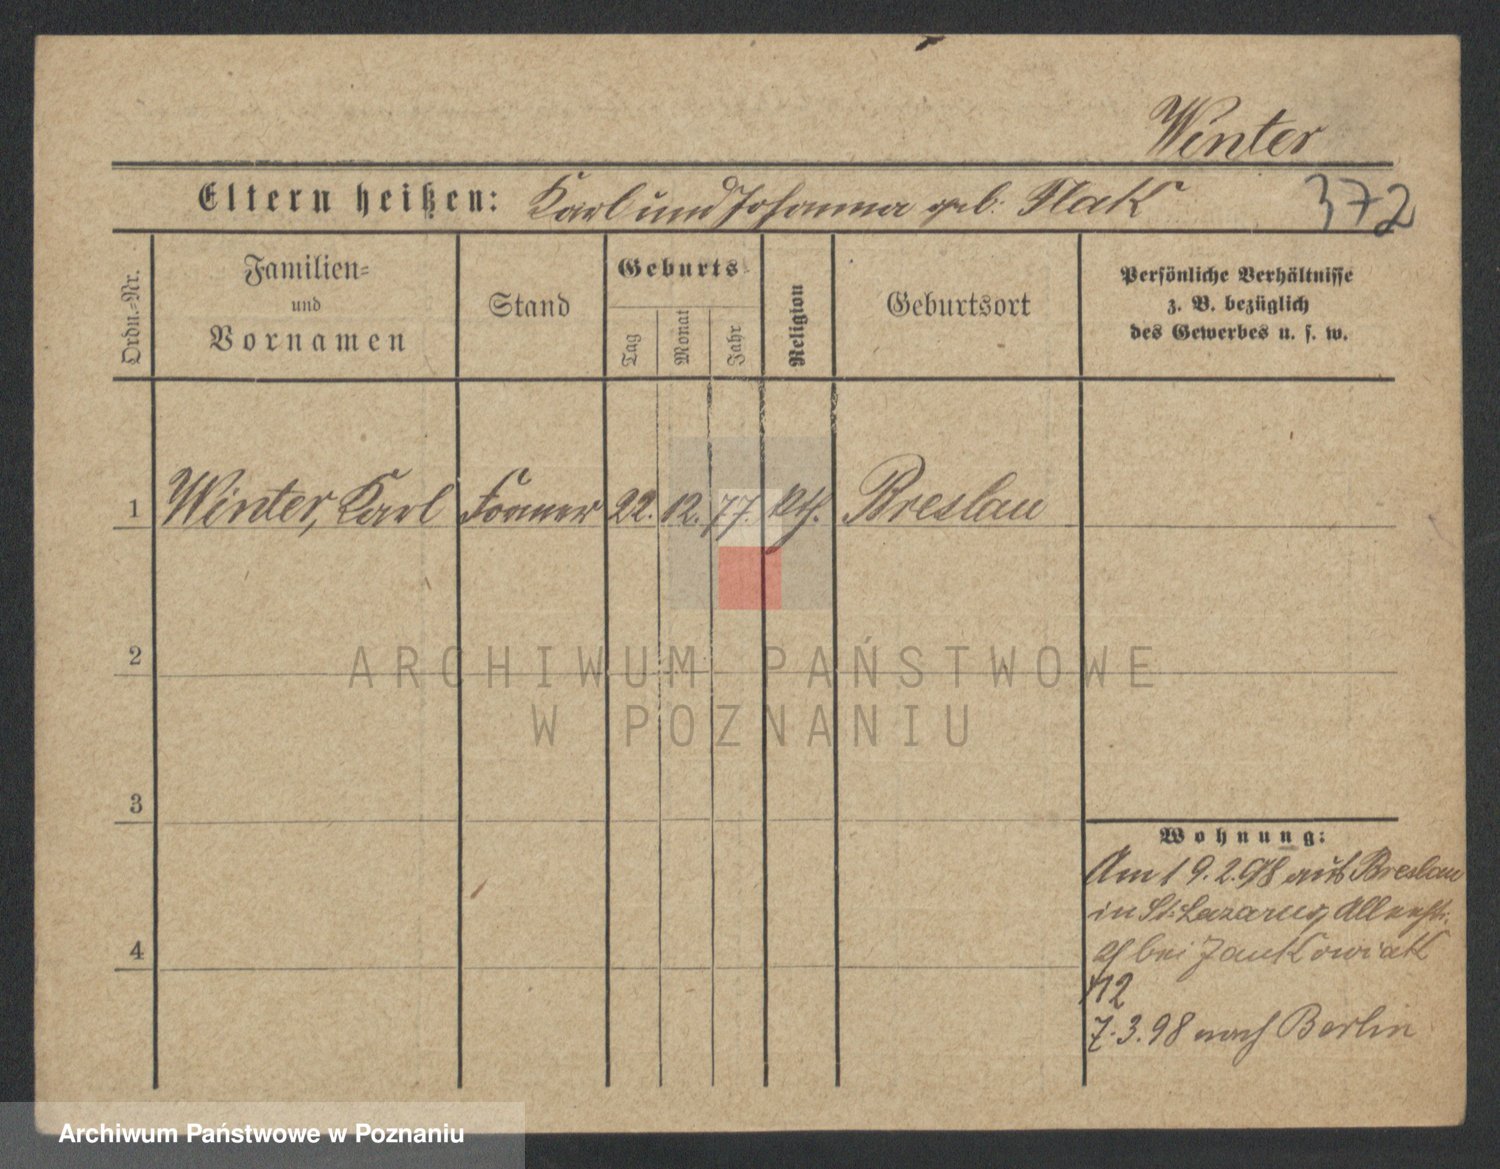 Winter
Eltern heißen: Karl und Johanna geb. Flak
372
Ordn.-Nr.
Familien-
und
Vornamen
Stand
Geburts
Tag
Monat
Jahr
Religion
Geburtsort
Persönliche Verhältnisse
z. B. bezüglich
des Gewerbes u. s. w.
1 Winter, Karl Former 22. 12. 77. kth. Breslau
2
ARCHIWUM PAŃSTWOWE
W POZNANIU
3
Wohnung:
Am 19.2.98 aus Breslau
in St. Lazarus,
bei Jankowiak
4
12
7.3.98 nach Berlin
Archiwum Państwowe w Poznaniu